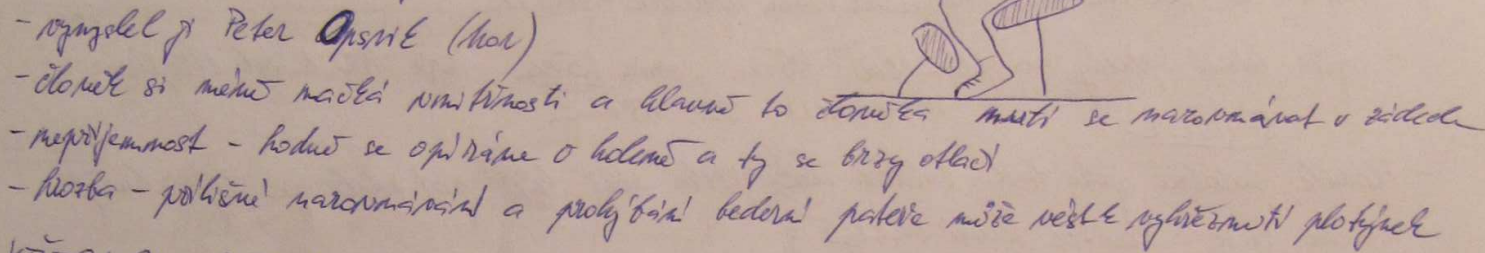 - vymyslel ji Peter Opsvik (nor)
- člověk si méně mačká vnitřnosti a hlavně to člověka nutí se narovnávat v zádech
- nepříjemnost - hodně se opíráme o koleně a ty se brzy otlačí
- hrozba - přílišné narovnávání a prohýbání bederní páteře může vést k vyhřeznutí plotýnek